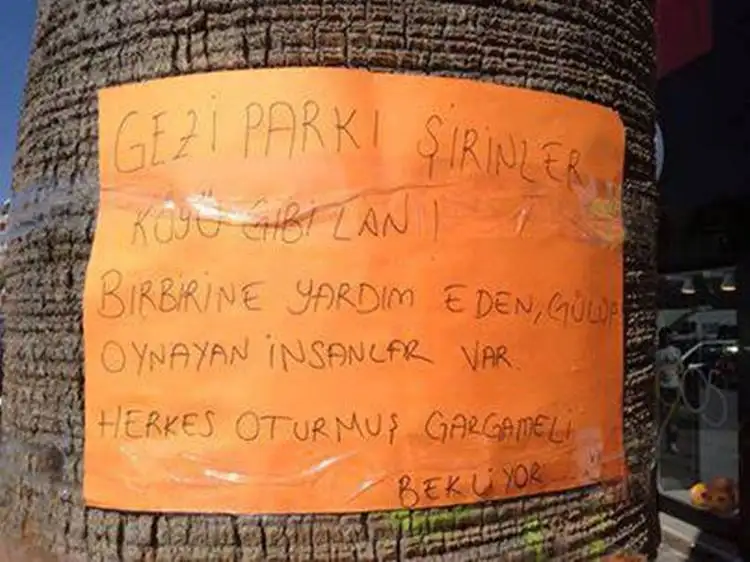 GEZİ PARKI ŞİRİNLER
KÖYÜ GİBİ LAN!
BIRBIRINE YARDIM EDEN, GÜLÜP
OYNAYAN İNSANLAR VAR.
HERKES OTURMUŞ GARGAMELİ
BEKLİYOR